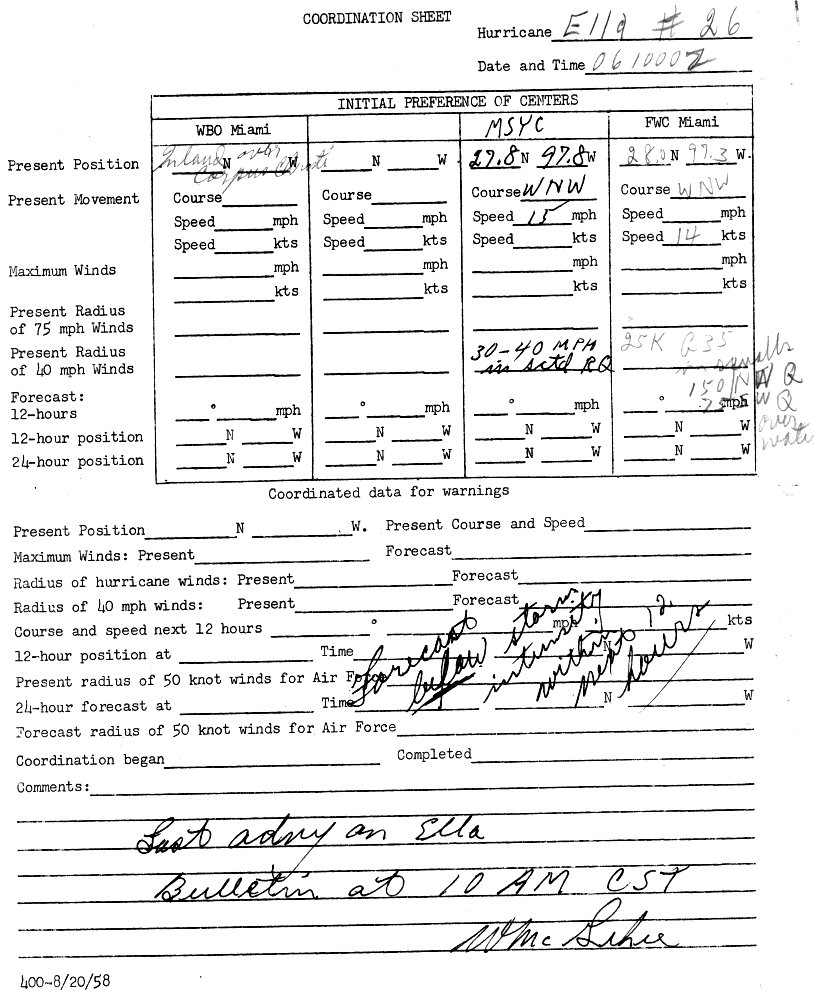 COORDINATION SHEET
Hurricane Ella # 26
Date and Time 061000Z
INITIAL PREFERENCE OF CENTERS
WBO Miami MSYC FWC Miami
Present Position Inland over Corpus Christi N W N W 27.8 N 97.8 W 28.0 N 97.3 W.
Present Movement Course Course Course WNW Course WNW
Speed mph Speed mph Speed 15 mph Speed mph
Speed kts Speed kts Speed kts Speed 14 kts
Maximum Winds mph mph mph mph
kts kts kts kts
Present Radius
of 75 mph Winds
Present Radius 30-40 MPH 25K G35
of 40 mph Winds in sctd RQ in squalls
Forecast: 150 NW Q
12-hours ° mph ° mph ° mph ° mph 75 SW Q
12-hour position N W N W N W N W over
24-hour position N W N W N W N W water
Coordinated data for warnings
Present Position N W. Present Course and Speed
Maximum Winds: Present Forecast
Radius of hurricane winds: Present Forecast
Radius of 40 mph winds: Present Forecast
Course and speed next 12 hours ° mph kts
12-hour position at Time N W
Present radius of 50 knot winds for Air Force
24-hour forecast at Time N W
Forecast below storm intensity within next 12 hours
Forecast radius of 50 knot winds for Air Force
Coordination began Completed
Comments:
Last advy on Ella
Bulletin at 10 AM CST
400-8/20/58